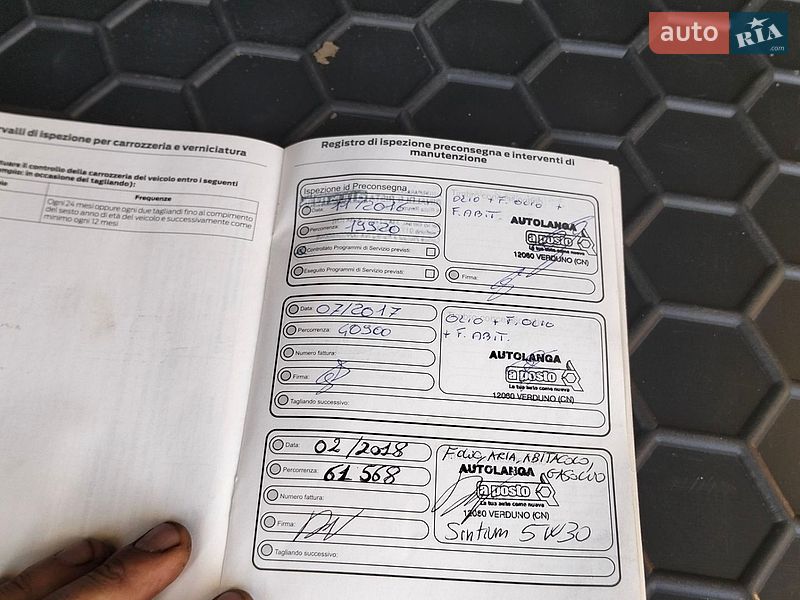 auto RIA .com
rvalli di ispezione per carrozzeria e verniciatura
tuare il controllo della carrozzeria del veicolo entro i seguenti
mpio: in occasione del tagliando):
Frequenze
Ogni 24 mesi oppure ogni due tagliandi fino al compimento
del sesto anno di età del veicolo e successivamente come
minimo ogni 12 mesi
Registro di ispezione preconsegna e interventi di
manutenzione
Ispezione id Preconsegna
Data: 11/2016
Percorrenza: 19920
Controllato Programmi di Servizio previsti:
Eseguito Programmi di Servizio previsti:
OLIO + F. OLIO +
F. ABIT.
AUTOLANGA
a posto
La tua auto come nuova
12060 VERDUNO (CN)
Firma:
Data: 07/2017
Percorrenza: 40900
Numero fattura:
Firma:
Tagliando successivo:
OLIO + F. OLIO
+ F. ABIT.
AUTOLANGA
a posto
La tua auto come nuova
12060 VERDUNO (CN)
Data: 02/2018
Percorrenza: 61568
Numero fattura:
Firma:
Tagliando successivo:
F. OLIO, ARIA, ABITACOLO,
GASOLIO
AUTOLANGA
a posto
La tua auto come nuova
12060 VERDUNO (CN)
Sintium 5W30